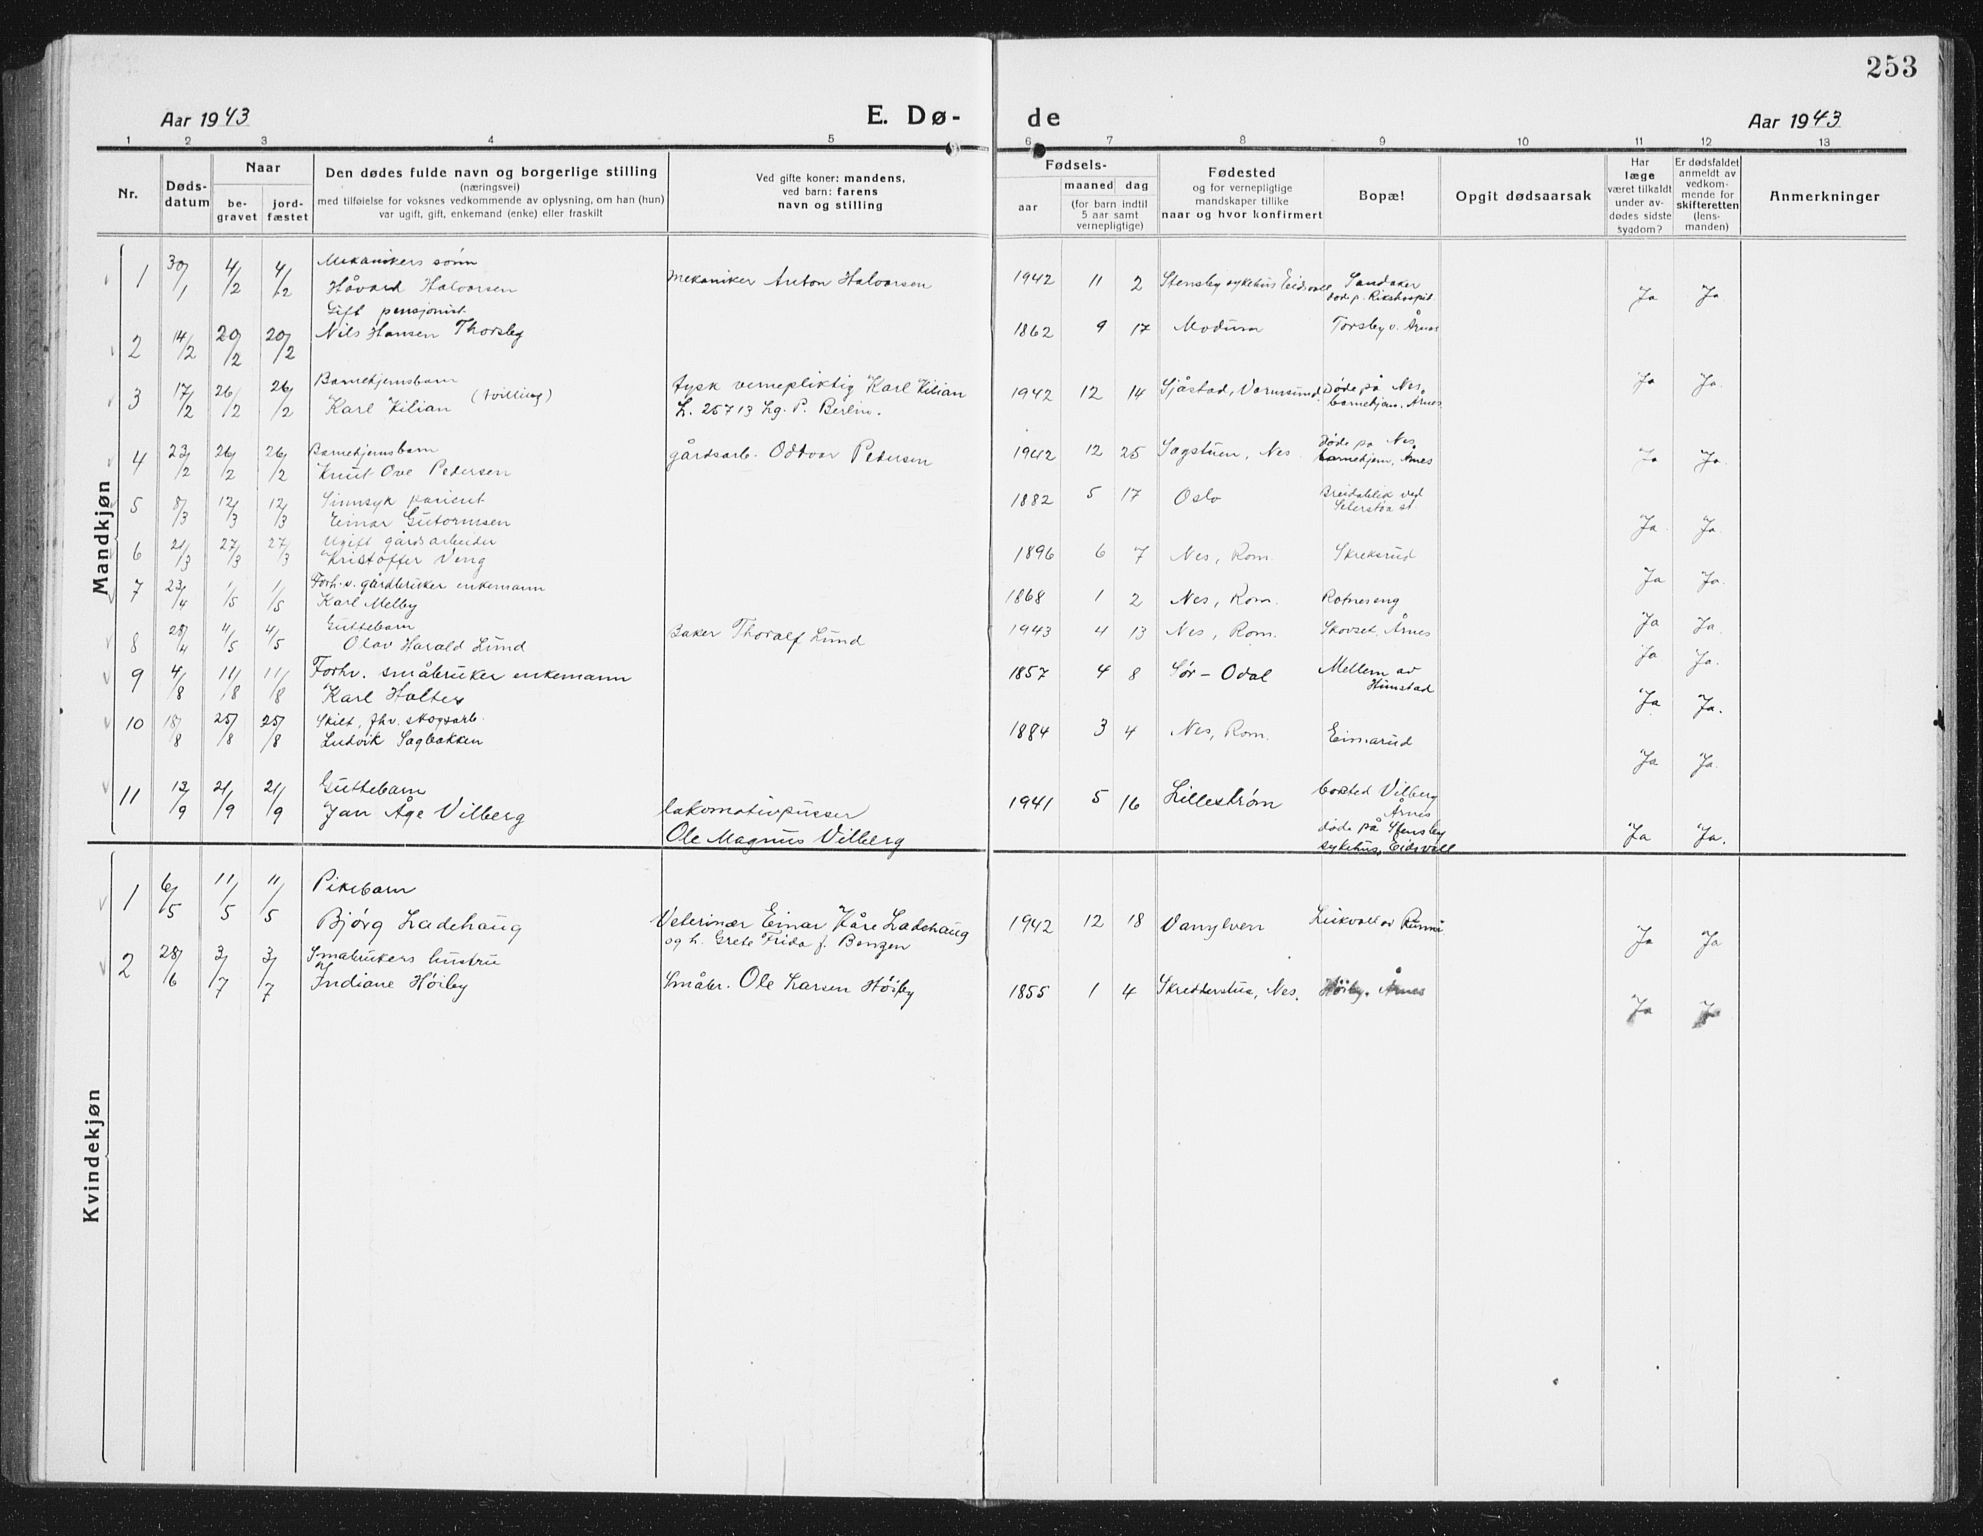 253
Aar 1943 E. Dø- de Aar 1943
1 2 3 4 5 6 7 8 9 10 11 12 13
Nr.
Døds-
datum
Naar
be-
gravet
jord-
fæstet
Den dødes fulde navn og borgerlige stilling
(næringsvei)
med tilføielse for voksnes vedkommende av oplysning, om han (hun)
var ugift, gift, enkemand (enke) eller fraskilt
Ved gifte koner: mandens,
ved barn: farens
navn og stilling
Fødsels-
aar
maaned dag
(for barn indtil
5 aar samt
vernepligtige)
Fødested
og for vernepligtige
mandskaper tillike
naar og hvor konfirmert
Bopæl
Opgit dødsaarsak
Har
læge
været tilkaldt
under av-
dødes sidste
sygdom?
Er dødsfaldet
anmeldt av
vedkom-
mende for
skifteretten
(lens-
manden)
Anmerkninger
Mandkjøn
1 30/1 4/2 4/2 Mekanikers sønn
Håvard Halvorsen Mekaniker Anton Halvorsen 1942 11 2 Stensby sykehus Eidsvoll Sandaker
døde p. Rikshospit. Ja Ja
Gift pensjonist
2 14/2 20/2 20/2 Nils Hansen Thorsby 1862 9 17 Modum Torsby v. Årnes Ja Ja.
3 17/2 26/2 26/2 Barnehjemsbarn
Karl Kilian (tvilling) tysk vernepliktig Karl Kilian
L. 25713 Lg. P. Berlin. 1942 12 14 Sjåstad, Vormsund. Døde på Nes
barnehjem. Årnes
4 23/2 26/2 26/2 Barnehjemsbarn
Knut Ove Pedersen gårdsarb. Oddvar Pedersen 1942 12 25 Sagstuen, Nes. Døde på Nes
barnehjem, Årnes Ja Ja.
5 8/3 12/3 12/3 Sinnsyk pasient
Einar Gutormsen 1882 5 17 Oslo Breidablik ved
Seterstøa st. Ja. Ja
6 21/3 27/3 27/3 Ugift gårdsarbeider
Kristoffer Veng 1896 6 7 Nes, Rom. Skreksrud Ja Ja.
7 23/4 1/5 1/5 Forh.v. gårdbruker enkemann
Karl Melby 1868 1 2 Nes, Rom. Rotneseng Ja Ja.
8 28/4 4/5 4/5 Guttebarn
Olav Harald Lund Baker Thoralf Lund 1943 4 13 Nes, Rom. Skovset, Årnes Ja Ja.
9 4/8 11/8 11/8 Forhv. småbruker enkemann
Karl Holter 1857 4 8 Sør-Odal Mellem av
Henstad Ja Ja.
10 18/8 25/8 25/8 Skilt, fhv. skogsarb.
Ludvik Sagbakken 1884 3 4 Nes, Rom. Eimarud Ja Ja.
11 13/9 21/9 21/9 Guttebarn
Jan Åge Vilberg lokomotivpusser
Ole Magnus Vilberg 1941 5 16 Lillestrøm bosted Vilberg
Årnes
døde på Stensby
sykehus, Eidsvoll Ja Ja.
Kvindekjøn
1 6/5 11/5 11/5 Pikebarn
Bjørg Ladehaug Veterinær Einar Kåre Ladehaug
og h. Grete Frida f. Bengen 1942 12 18 Vanylven Ja Ja
2 28/6 3/7 3/7 Småbrukers hustru
Indiane Høiby Småbr. Ole Larsen Høiby 1855 1 4 Skredderstua, Nes. Høiby. Årnes Ja Ja